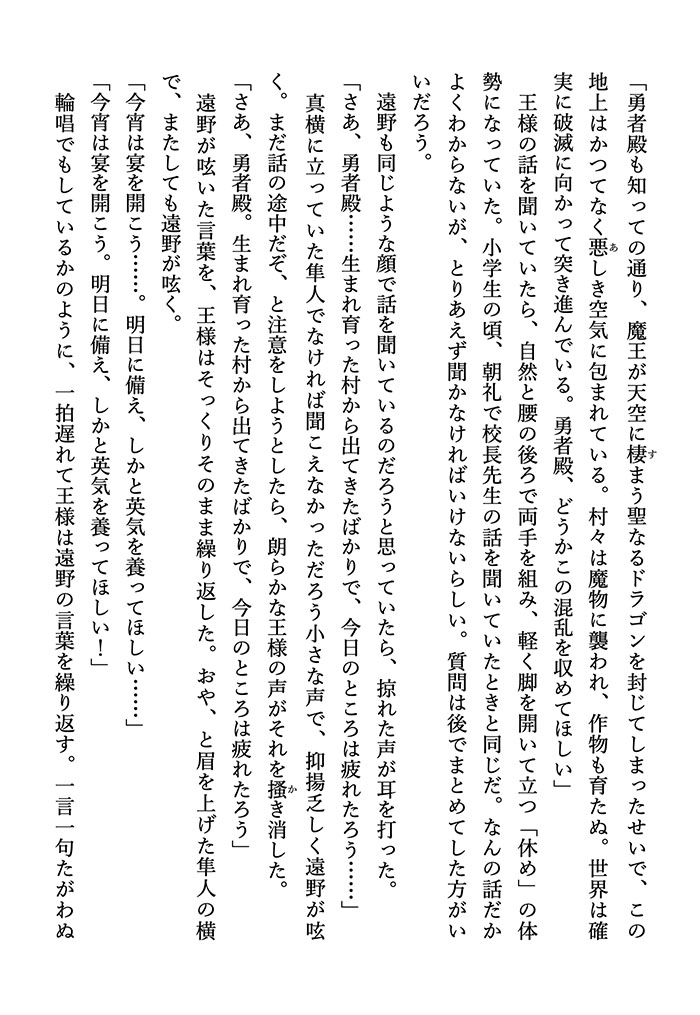 「勇者殿も知っての通り、魔王が天空に棲まう聖なるドラゴンを封じてしまったせいで、この
地上はかつてなく悪しき空気に包まれている。村々は魔物に襲われ、作物も育たぬ。世界は確
実に破滅に向かって突き進んでいる。勇者殿、どうかこの混乱を収めてほしい」
　王様の話を聞いていたら、自然と腰の後ろで両手を組み、軽く脚を開いて立つ「休め」の体
勢になっていた。小学生の頃、朝礼で校長先生の話を聞いていたときと同じだ。なんの話だか
よくわからないが、とりあえず聞かなければいけないらしい。質問は後でまとめてした方がい
いだろう。
　遠野も同じような顔で話を聞いているのだろうと思っていたら、掠れた声が耳を打った。
「さあ、勇者殿……生まれ育った村から出てきたばかりで、今日のところは疲れたろう……」
　真横に立っていた隼人でなければ聞こえなかっただろう小さな声で、抑揚乏しく遠野が呟
く。まだ話の途中だぞ、と注意をしようとしたら、朗らかな王様の声がそれを搔き消した。
「さあ、勇者殿。生まれ育った村から出てきたばかりで、今日のところは疲れたろう」
　遠野が呟いた言葉を、王様はそっくりそのまま繰り返した。おや、と眉を上げた隼人の横
で、またしても遠野が呟く。
「今宵は宴を開こう……。明日に備え、しかと英気を養ってほしい……」
「今宵は宴を開こう。明日に備え、しかと英気を養ってほしい！」
　輪唱でもしているかのように、一拍遅れて王様は遠野の言葉を繰り返す。一言一句たがわぬ